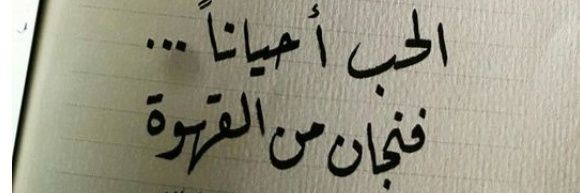 الحب أحياناً ...
فنجان من القهوة